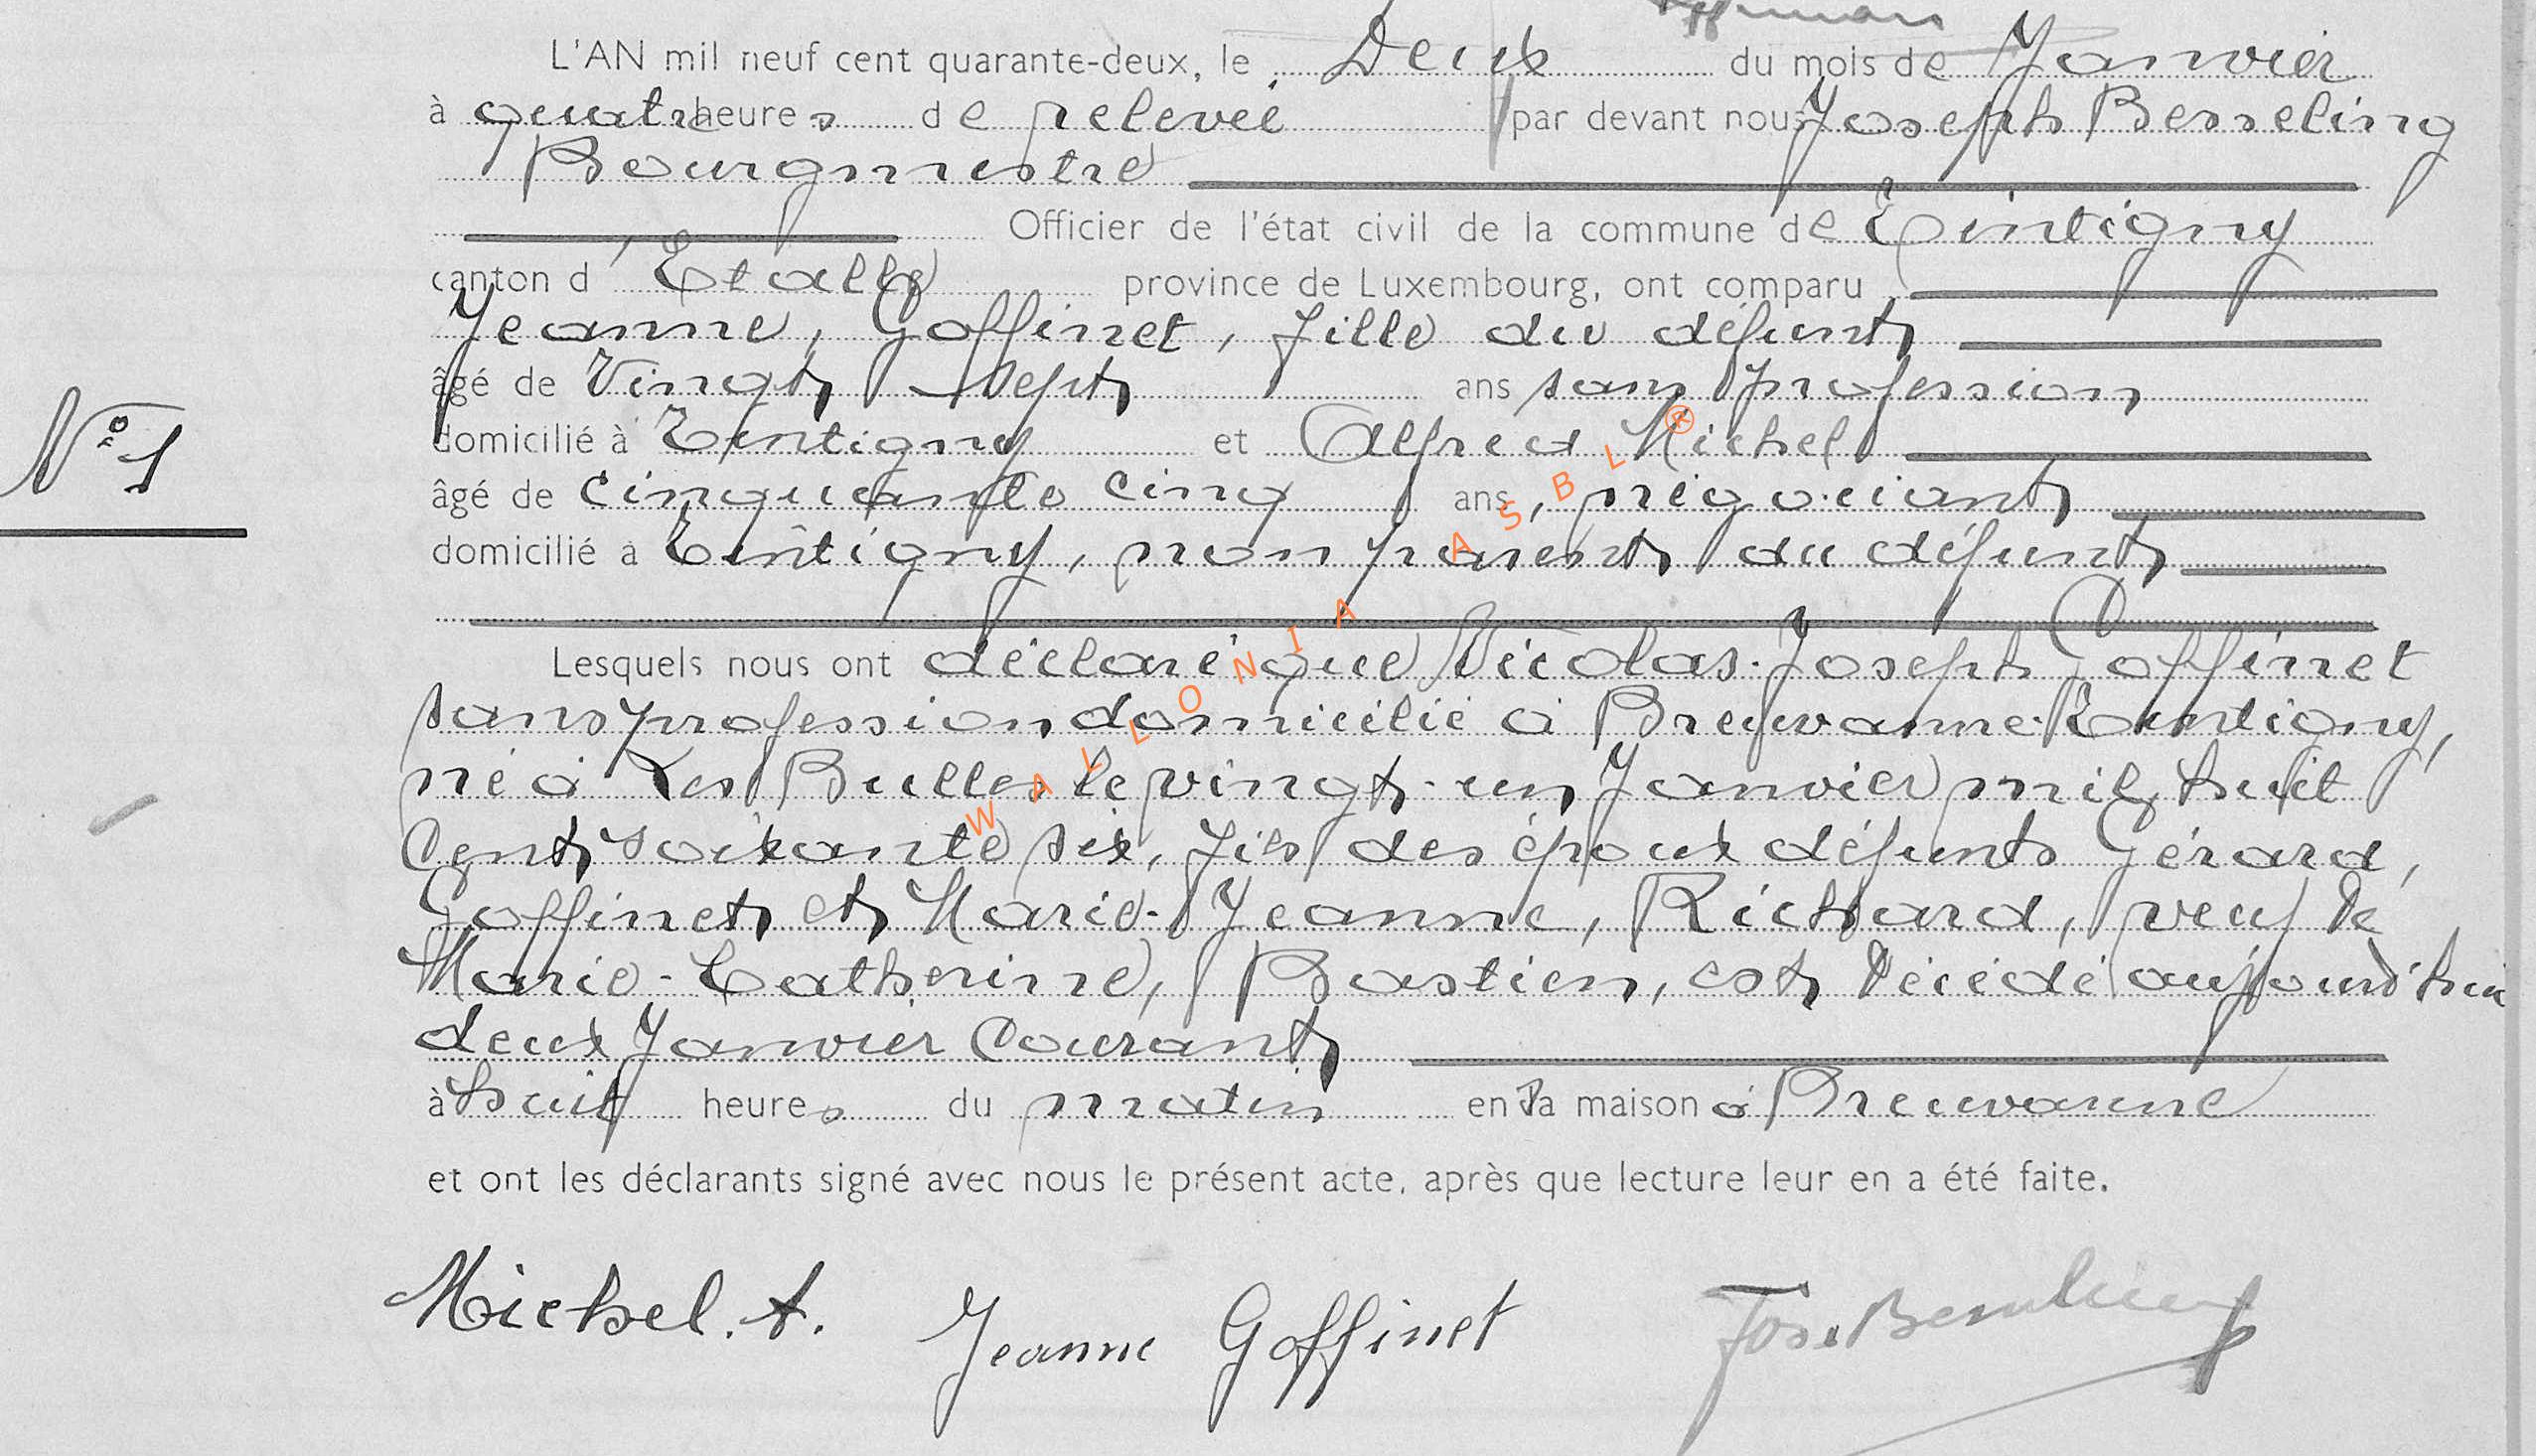 L'AN mil neuf cent quarante-deux, le Deux du mois de Janvier
à quatre heures de relevée par devant nous Joseph Besseling
Bourgmestre
Officier de l'état civil de la commune de Tintigny
canton d'Etalle province de Luxembourg, ont comparu
Jeanne, Goffinet, fille du défunt
âgé de Vingt Sept ans sans profession
domicilié à Tintigny et Alfred Michel
âgé de cinquante cinq ans, négociant
domicilié à Tintigny, non parent du défunt
N° 1
Lesquels nous ont déclaré que Nicolas-Joseph Goffinet
sans profession domicilié à Breuvanne-Tintigny,
né à Les Bulles le vingt-un Janvier mil huit
Cent soixante six, fils des époux défunts Gérard,
Goffinet et Marie-Jeanne, Richard, veuf de
Marie-Catherine, Bastien, est décédé aujourd'hui
deux Janvier Courant
à huit heures du matin en sa maison à Breuvanne
et ont les déclarants signé avec nous le présent acte, après que lecture leur en a été faite.
Michel. A. Jeanne Goffinet Jos. Besseling
WALLONIA ASBL ®